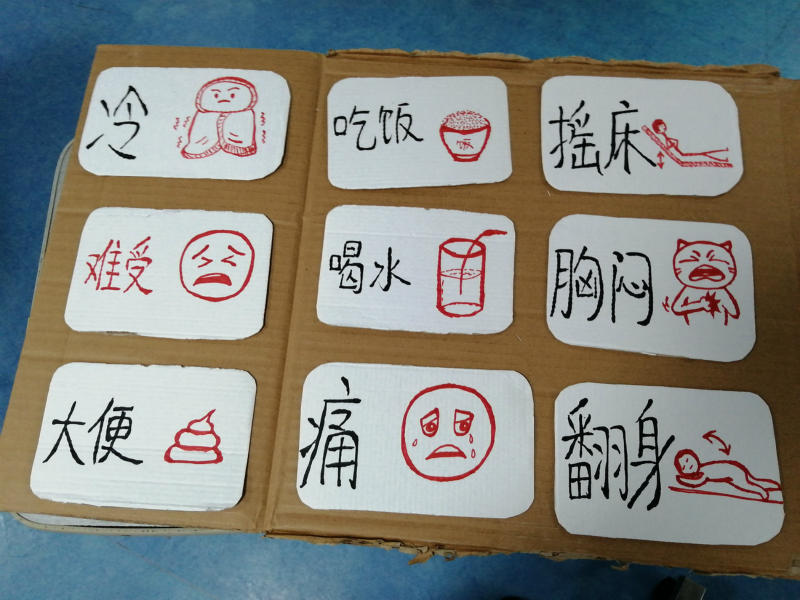 冷
吃饭
摇床
难受
喝水
胸闷
大便
痛
翻身